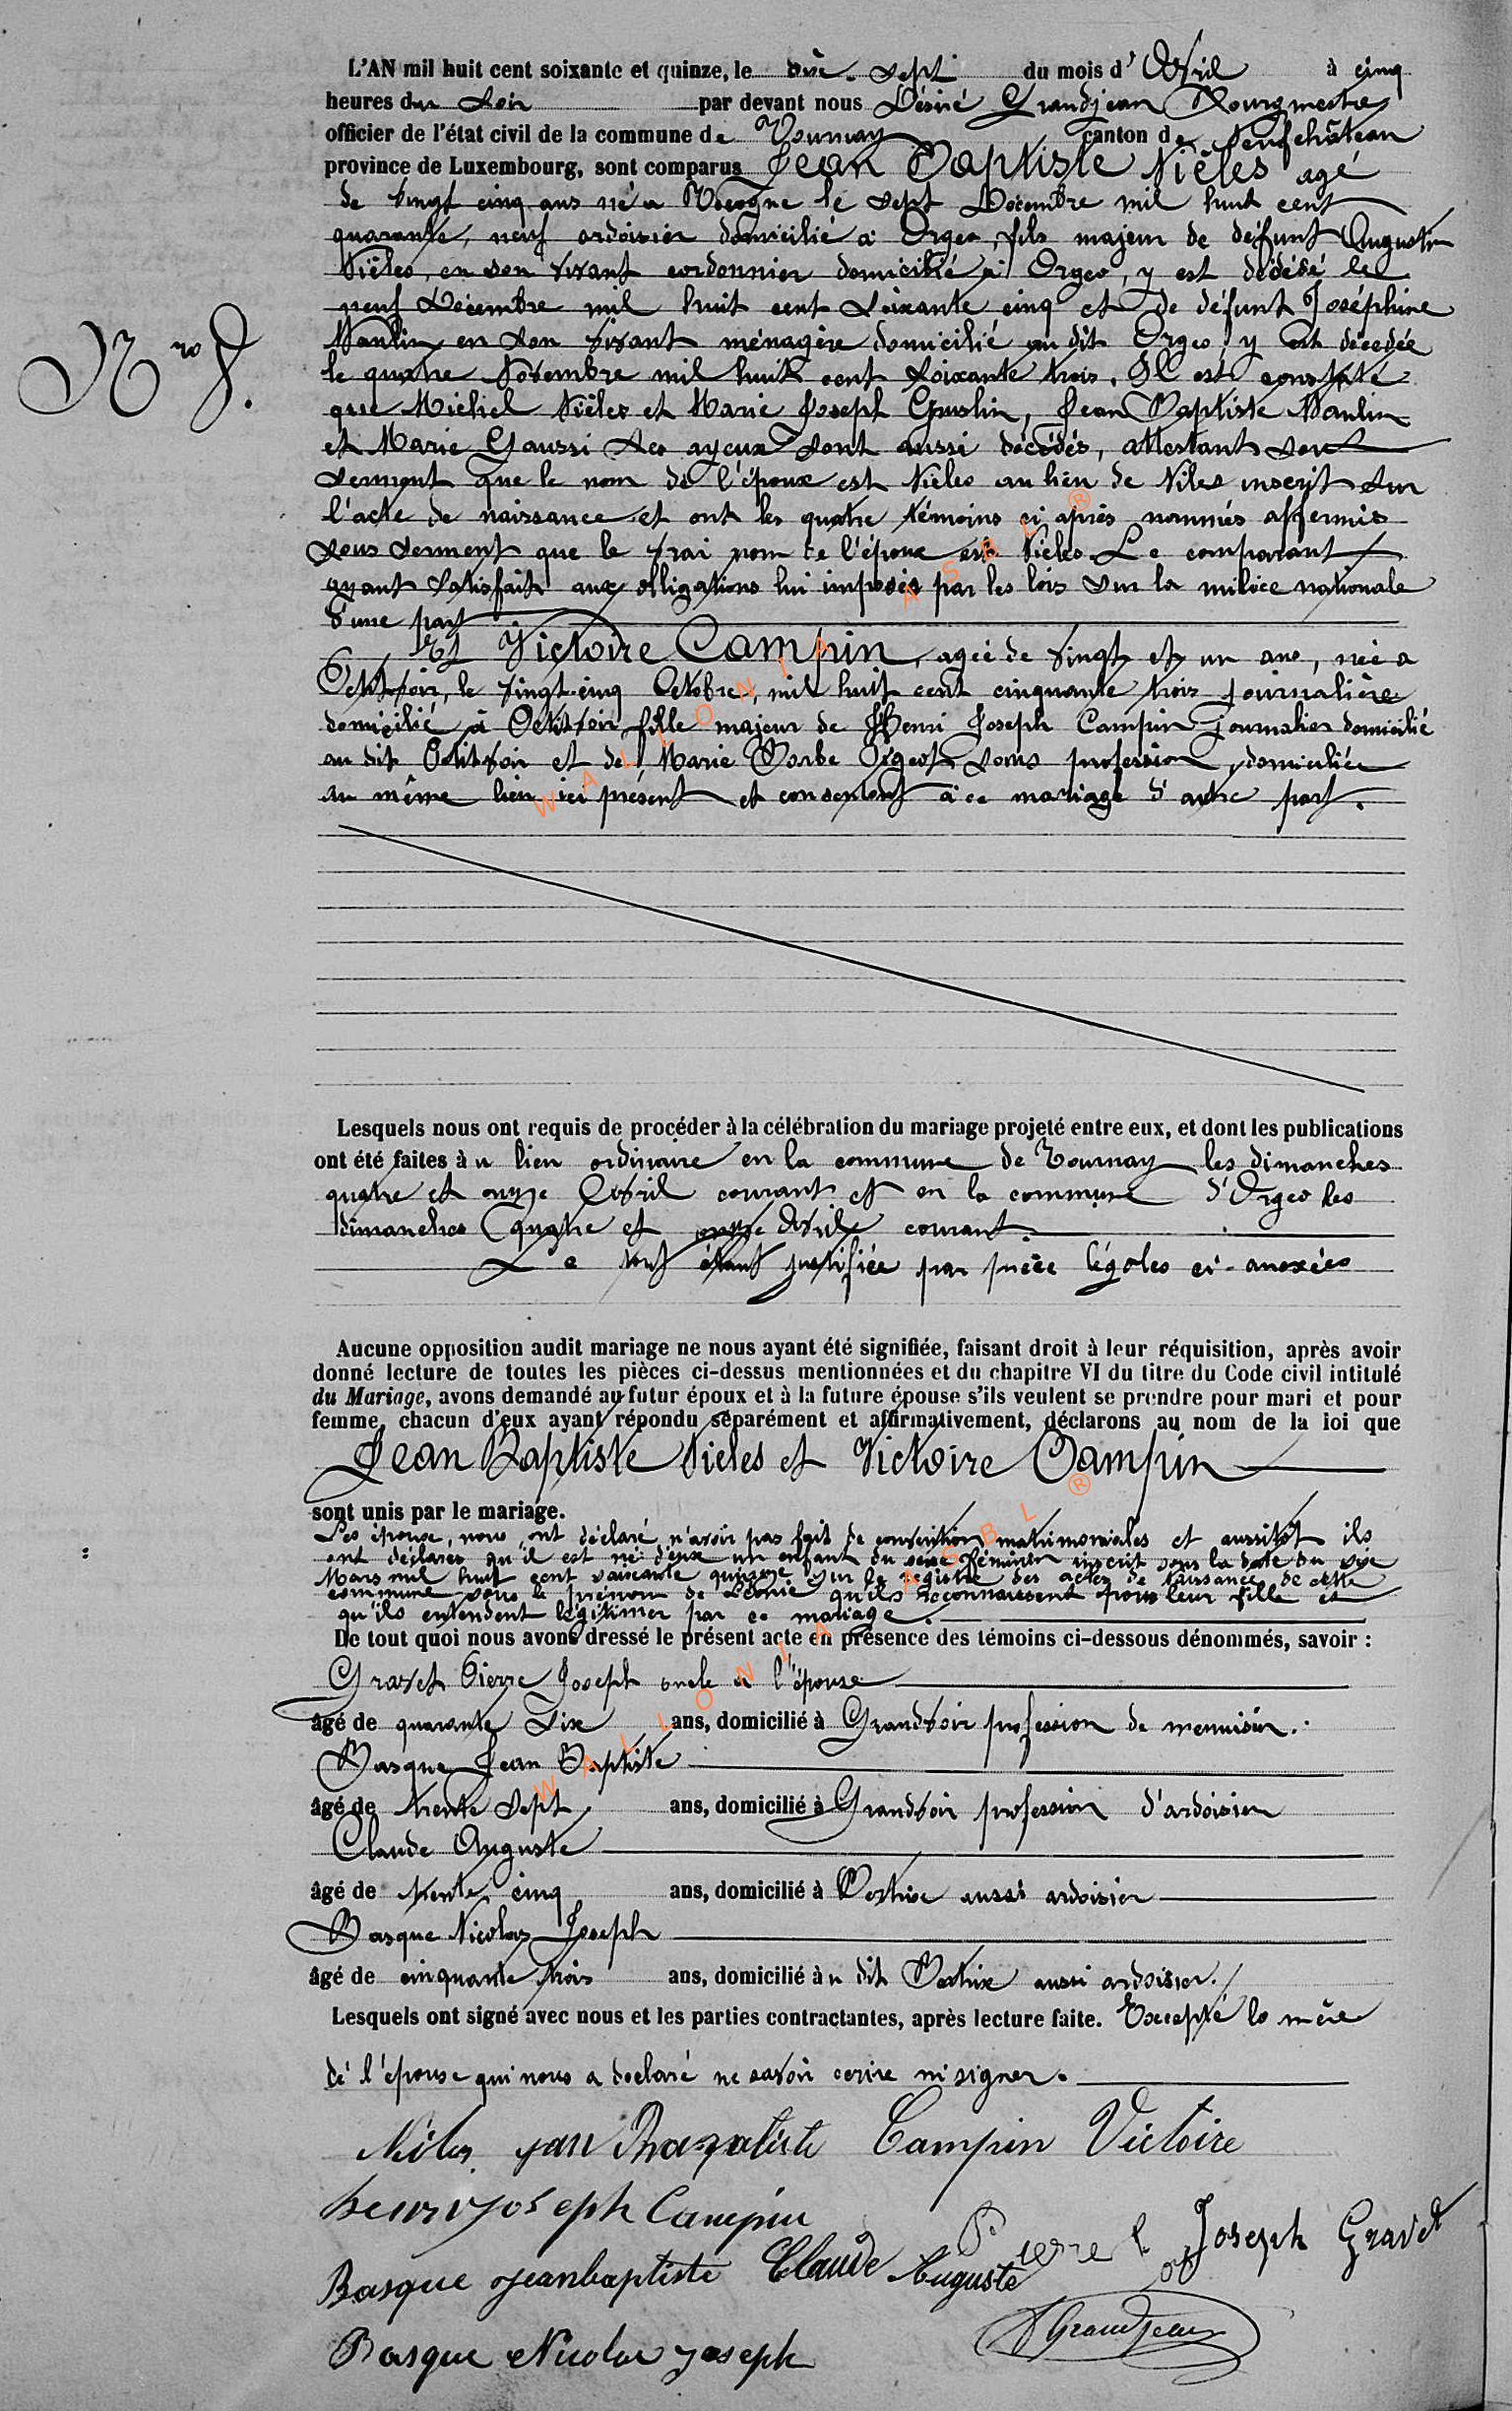 L'AN mil huit cent soixante et quinze, le dix-sept du mois d'Avril à cinq
heures du soir par devant nous Désiré Grandjean Bourgmestre
officier de l'état civil de la commune de Tournay canton de Neufchâteau
province de Luxembourg, sont comparus Jean Baptiste Nièles agé
de vingt cinq ans né à Recogne le sept Décembre mil huit cent
quarante, neuf ardoisier domicilié à Orgeo, fils majeur de défunt Augustin
Nièles, en son vivant cordonnier domicilié à Orgeo, y est dédédé le
neuf Décembre mil huit cent soixante cinq et de défunt Joséphine
Maulin en son vivant ménagère domicilié au dit Orgeo y est décedée
le quatre Novembre mil huit cent soixante trois, Il est constaté
que Michel Nièles et Marie Joseph Gruslin, Jean Baptiste Maulin
et Marie Gaussi ses ayeux sont aussi décédés, attestant sous
serment que le nom de l'époux est Nièles au lieu de Niles inscrit sur
l'acte de naissance et ont les quatre témoins ci après nommés affermis
sous serment que le vrai nom de l'époux est Nieles. Le comparant
ayant satisfait aux obligations lui imposées par les lois sur la milice nationale
d'une part
Et Victoire Campin, agée de vingt et un ans, née à
Petitvoir, le vingt-cinq Octobre, mil huit cent cinquante trois journalière
domicilié à Petitvoir fille majeur de Henri Joseph Campin journalier domicilié
au dit Petitvoir et de Marie Barbe Orgeot sans profession, domiciliée
au même lieu ici présent et consentant à ce mariage d'autre part.
Nro 8.
Lesquels nous ont requis de procéder à la célébration du mariage projeté entre eux, et dont les publications
ont été faites au lieu ordinaire en la commune de Tournay les dimanches
quatre et onze Avril courant et en la commune d'Orgeo les
dimanches quatre et onze Avril courant
Le tout étant justifiée par pièce légales ci-anexées
Aucune opposition audit mariage ne nous ayant été signifiée, faisant droit à leur réquisition, après avoir
donné lecture de toutes les pièces ci-dessus mentionnées et du chapitre VI du titre du Code civil intitulé
du Mariage, avons demandé au futur époux et à la future épouse s'ils veulent se prendre pour mari et pour
femme, chacun d'eux ayant répondu séparément et affirmativement, déclarons au nom de la loi que
Jean Baptiste Nieles et Victoire Campin
sont unis par le mariage.
Les époux, nous ont déclaré n'avoir pas fait de convention matrimoniales et aussitôt ils
ont déclarer qu'il est né d'eux un enfant du sexe féminin inscrit sous la date du six
Mars mil huit cent soixante quinze sur le registre des actes de Naissance de cette
commune sous le prénom de Léonie qu'ils reconnaissent pour leur fille et
qu'ils entendent légitimer par ce mariage.
De tout quoi nous avons dressé le présent acte en présence des témoins ci-dessous dénommés, savoir :
Gravet Pierre Joseph oncle a l'épouse
âgé de quarante six ans, domicilié à Grandvoir profession de menuisier.
Basque Jean Baptiste
âgé de trente sept ans, domicilié à Grandvoir profession d'ardoisier
Claude Auguste
âgé de trente cinq ans, domicilié à Bertrix aussi ardoisier
Basque Nicolas Joseph
âgé de cinquante trois ans, domicilié au dit Bertrix aussi ardoisier.
Lesquels ont signé avec nous et les parties contractantes, après lecture faite. Excepté la mère
de l'épouse qui nous a declaré ne savoir ecrire ni signer.
Niles jan Bapatiste Campin Victoire
henri joseph Campin
Pierre Joseph Gravet
Basque jeanbaptiste Claude Auguste
Grandjean
Basque Nicolas joseph
WALLONIA ASBL ®
WALLONIA ASBL ®